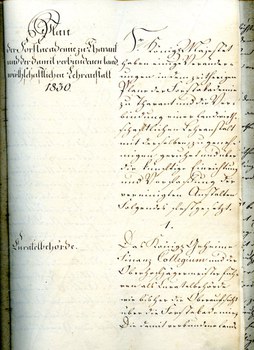 Plan
der Forstacademie zu Tharant
und der damit verbundenen land-
wirthschaftlichen Lehranstalt
1830.
Se. Königl. Majestät
haben einige Verände-
rungen in dem zeitherigen
Plane der Forstakademie
zu Tharant und die Ver-
bindung einer landwirth-
schaftlichen Lehranstalt
mit derselben zu geneh-
migen geruhet und über
die künftige Einrichtung
und Verfassung der
vereinigten Anstalten
Folgendes festgesetzt.
1.
Curatelbehörde.
Das Königl. Geheime
Finanz Collegium und die
Oberhofjägermeister
als Curatelbehörde
wie bisher die Oberaufsicht
über die Forstakademie
und die damit verbundene land